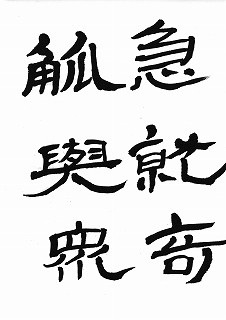 急就奇
觚與衆